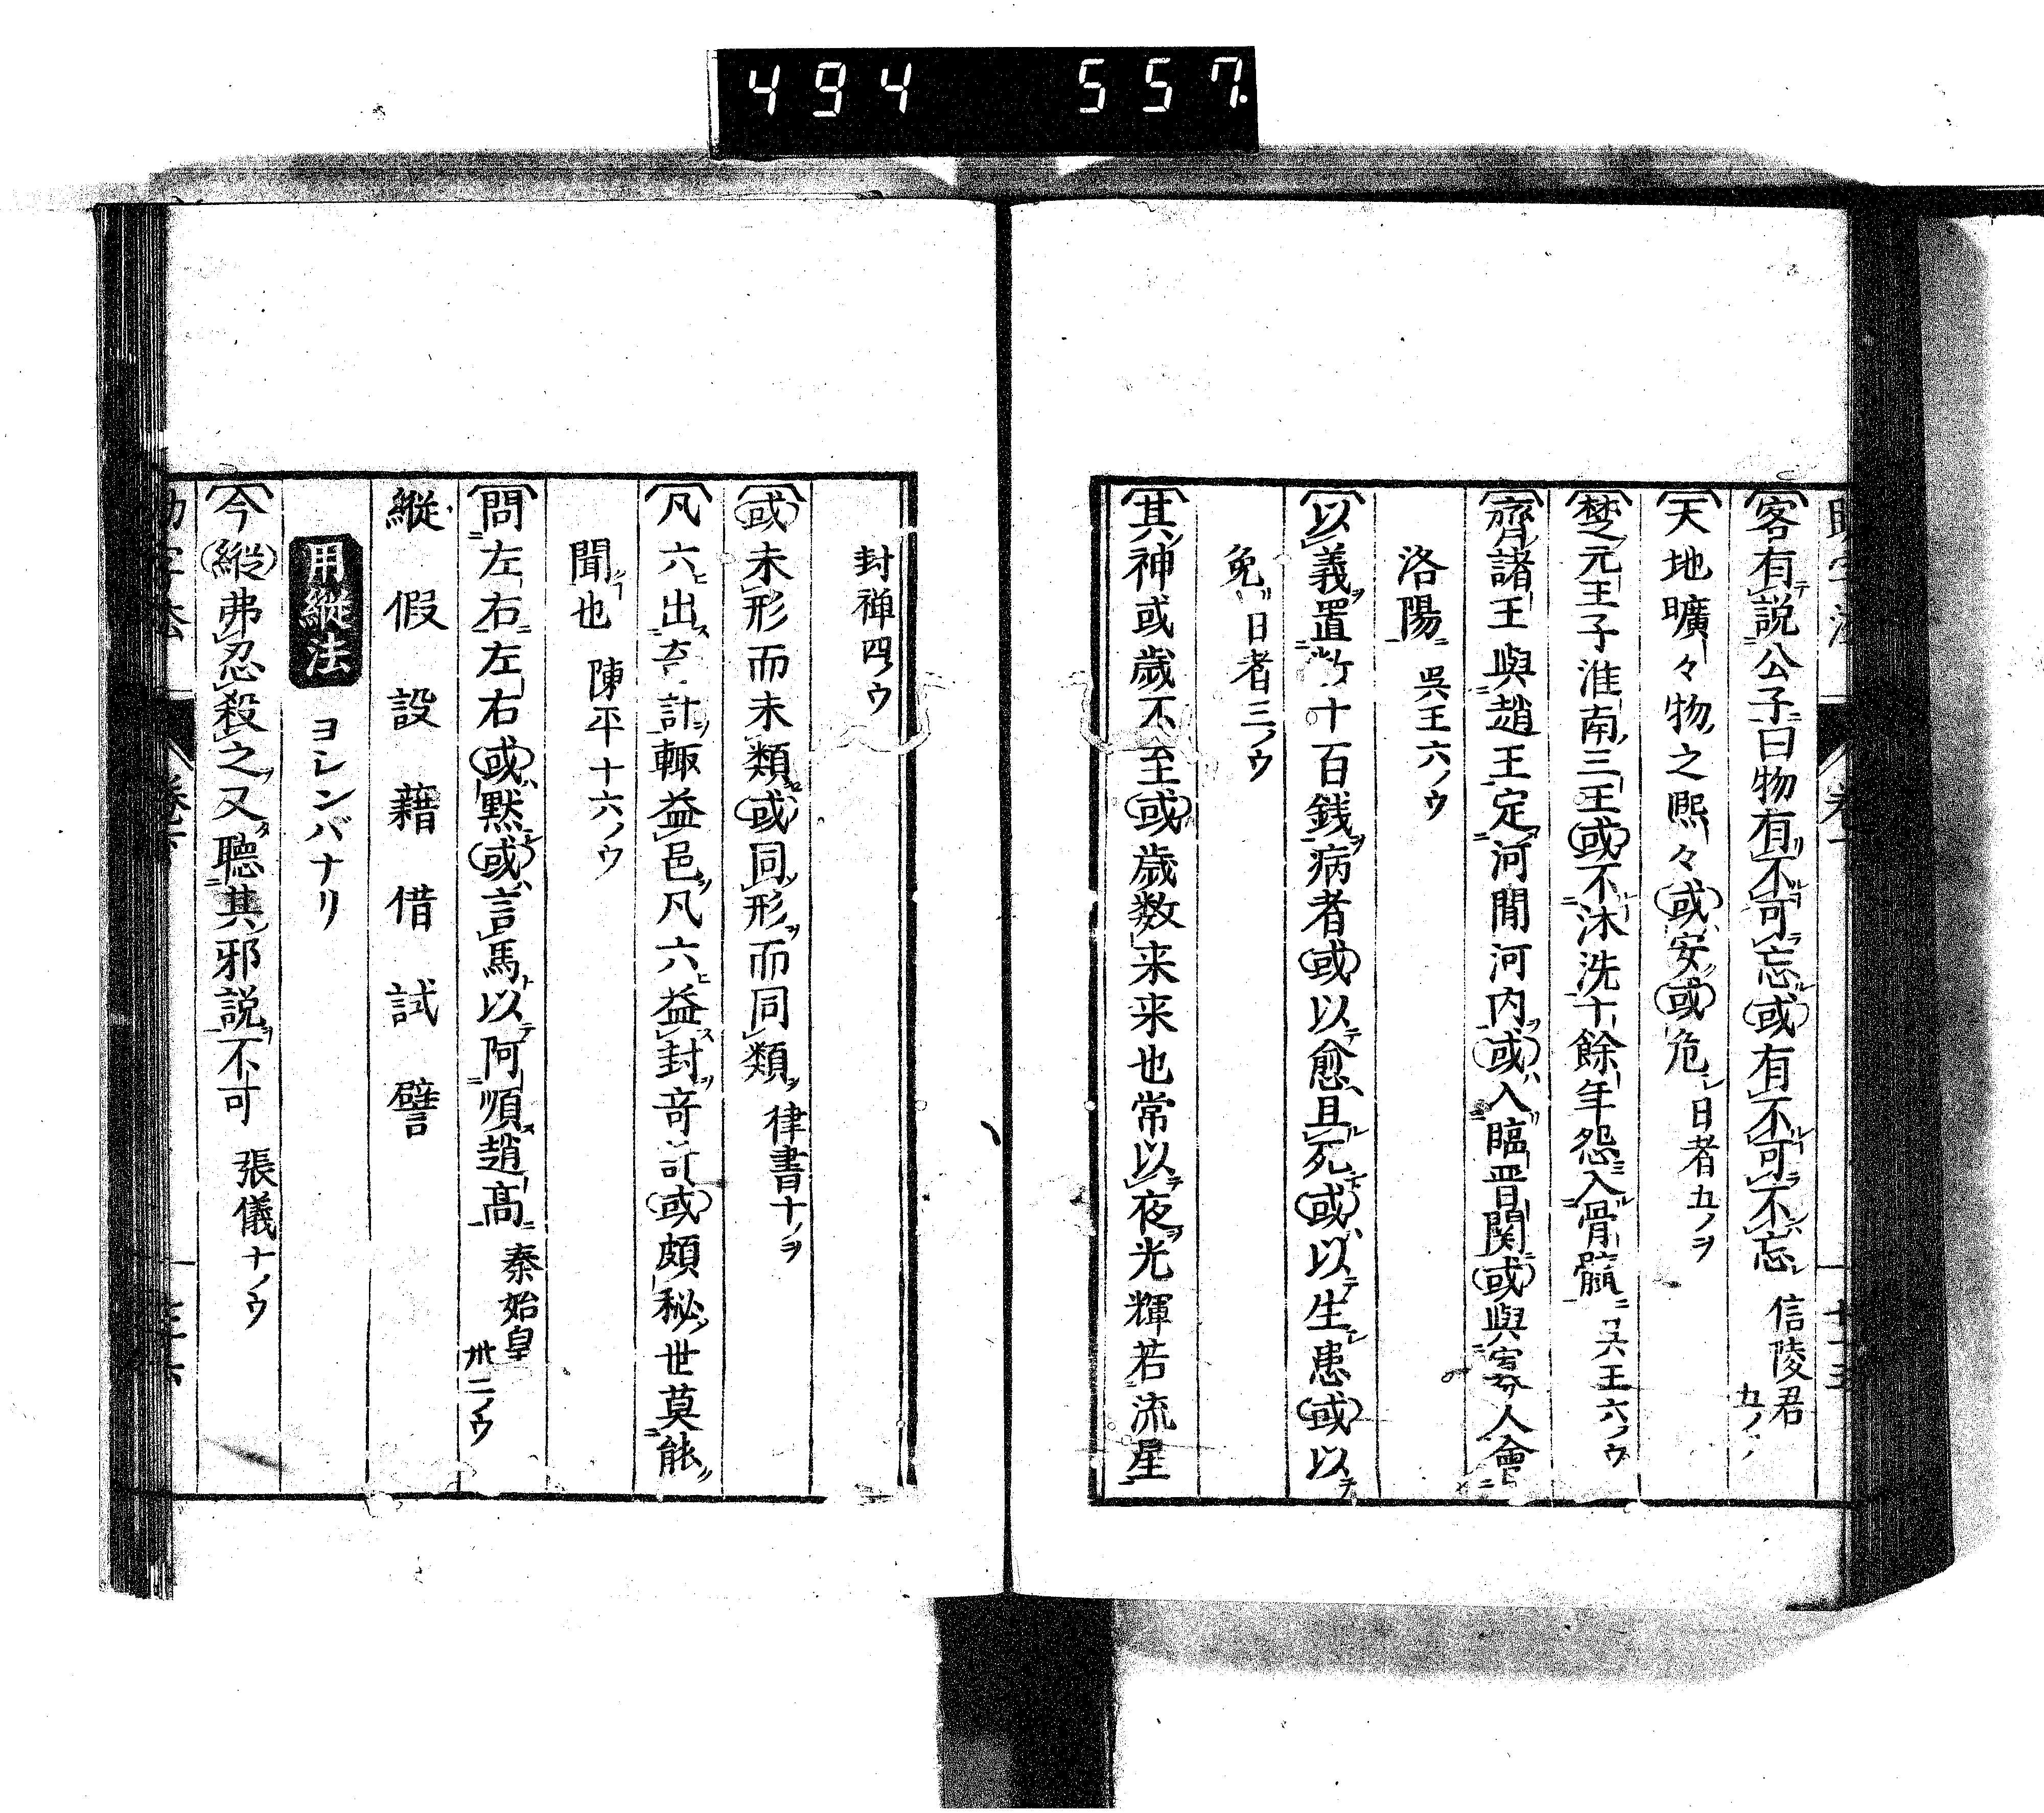 494 557
客有説公子曰物有不可忘或有不可不忘 信陵君九ノ
天地曠々物之熙々或安或危 日者五ノヲ
楚元王子淮南三王或不沐洗十餘年怨入骨髓 呉王六ノウ
齊諸王與趙王定河間河内或入臨晋関或與寡人會
洛陽 呉王六ノウ
以義置數十百銭病者或以愈且死或以生患或以
免 日者三ノウ
其神或歳不至或歳数来来也常以夜光輝若流星
封禅四ノウ
或未形而未類或同形而同類 律書十ノヲ
凡六出奇計輙益邑凡六益封奇計或頗秘世莫能
聞也 陳平十六ノウ
問左右左右或黙或言馬以阿順趙高 秦始皇卅二ノウ
縦 假 設 藉 借 試 譬
用縦法 ヨレンバナリ
今縦弗忍殺之又聴其邪説不可 張儀十ノウ